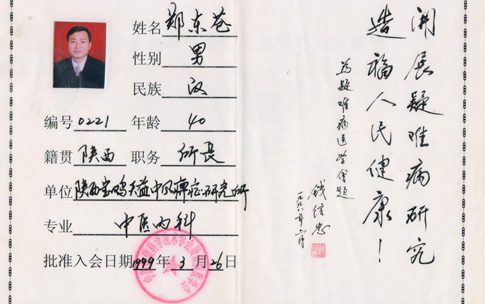 姓名 郑东苍
性别 男
民族 汉
编号 0221 年龄 40
籍贯 陕西 职务 所长
单位 陕西宝鸡天益中风痹症研究所
专业 中医内科
批准入会日期 1999 年 3 月 26 日
开展疑难病研究
造福人民健康！
为疑难病医学会题
钱信忠
一九九八年